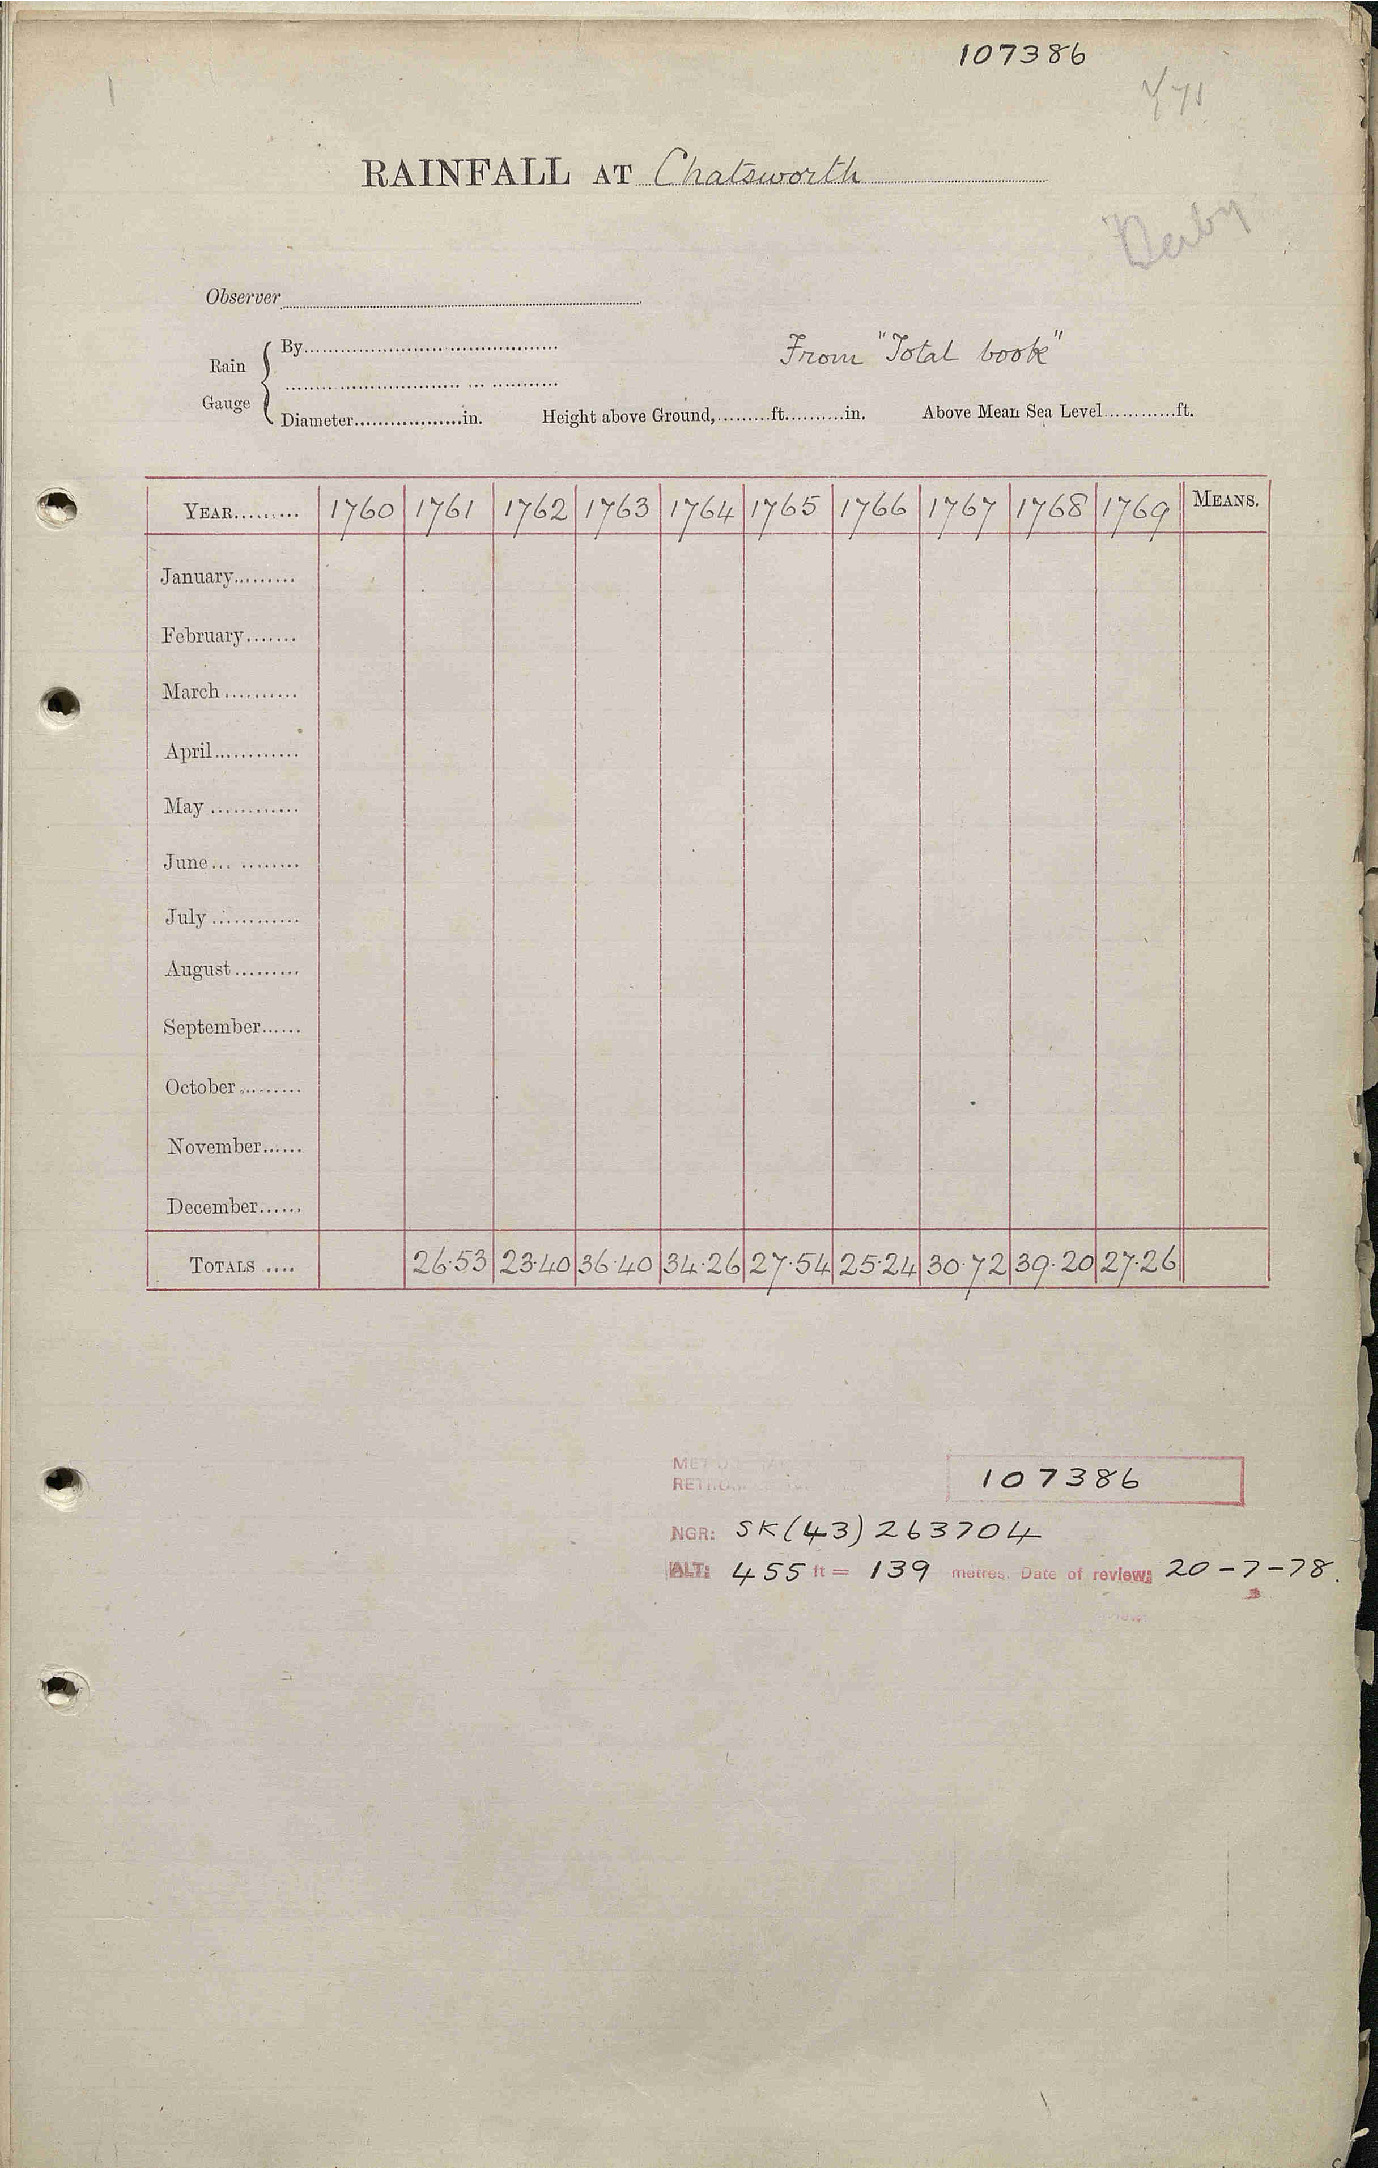 107386
1
RAINFALL AT Chatsworth
Derby
Observer
Rain Gauge { By
From "Total book"
Diameter in. Height above Ground, ft. in. Above Mean Sea Level ft.
YEAR 1760 1761 1762 1763 1764 1765 1766 1767 1768 1769 MEANS.
January
February
March
April
May
June
July
August
September
October
November
December
TOTALS 26.53 23.40 36.40 34.26 27.54 25.24 30.72 39.20 27.26
107386
NGR: SK(43)263704
ALT: 455 ft = 139 metres. Date of review: 20-7-78.